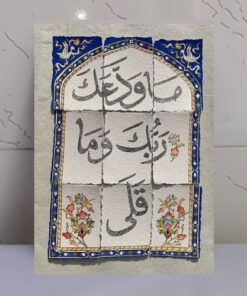 مَا وَدَّعَكَ
رَبُّكَ وَمَا
قَلَى